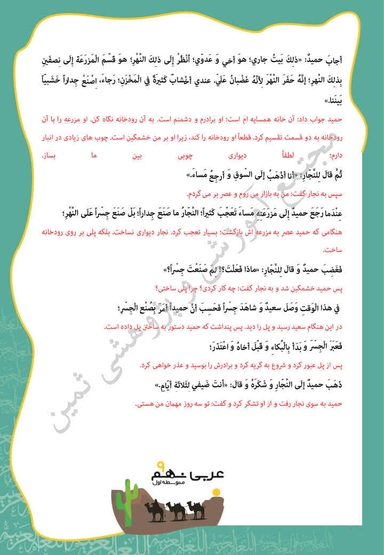 أجابَ حمیدٌ: «ذلِكَ بَیتُ جاري؛ هوَ أخي وَ عَدوّي؛ اُنْظُرْ إلَی ذلِكَ النَّهْرِ؛ هوَ قَسَّمَ المَزرَعَةَ إلَی نِصفَینِ
بِذلِكَ النَّهرِ؛ إنَّهُ حَفَرَ النَّهْرَ لِأَنَّهُ غَضْبانُ عَلَيَّ. عندي أخْشابٌ کَثیرَةٌ في المَخْزَنِ؛ رَجاءً، اِصْنَعْ جِداراً خَشَبیّاً
بَینَنا.»
حمید جواب داد: آن خانه همسایه ام است؛ او برادرم و دشمنم است. به آن رودخانه نگاه کن. او مزرعه را با آن
رودخانه به دو قسمت تقسیم کرد. قطعاً او رودخانه را کند، زیرا او بر من خشمگین است. چوب های زیادی در انبار
دارم؛ لطفاً دیواری چوبی بین ما بساز.
ثُمَّ قالَ لِلنَّجّارِ: «أنا أذهَبُ إلَی السّوقِ وَ أرجِعُ مَساءً.»
سپس به نجار گفت: من به بازار می روم و عصر بر می گردم.
عِنْدَما رَجَعَ حمیدٌ إلَی مَزرَعَتِهِ مَساءً تَعَجَّبَ کَثیراً؛ النَّجّارُ ما صَنَعَ جِداراً؛ بَلْ صَنَعَ جِسراً عَلَی النَّهْرِ؛
هنگامی که حمید عصر به مزرعه اش بازگشت؛ بسیار تعجب کرد. نجار دیواری نساخت، بلکه پلی بر روی رودخانه
ساخت.
فَغَضِبَ حمیدٌ وَ قالَ لِلنَّجّارِ: «ماذا فَعَلْتَ؟! لِمَ صَنَعْتَ جِسراً؟»
پس حمید خشمگین شد و به نجار گفت: چه کار کردی؟ چرا پلی ساختی؟
في هذا الْوَقتِ وَصَلَ سعیدٌ وَ شاهَدَ جِسراً فَحَسِبَ أنَّ حمیداً أمَرَ بِصُنْعِ الْجِسرِ؛
در این هنگام سعید رسید و پل را دید. پس پنداشت که حمید دستور به ساختن پل داده است.
فَعَبَرَ الْجِسرَ وَ بَدَأَ بِالْبُکاءِ وَ قَبَّلَ أخاهُ وَ اعْتَذَرَ؛
پس از پل عبور کرد و شروع به گریه کرد و برادرش را بوسید و عذر خواهی کرد.
ذَهَبَ حمیدٌ إلَی النَّجّارِ وَ شَکَرَهُ وَ قالَ: «أنتَ ضَیفي لِثَلاثَةِ أیّامٍ.»
حمید به سوی نجار رفت و از او تشکر کرد و گفت: تو سه روز مهمان من هستی.
مجتمع آموزشی و پژوهشی ثمین
عربی نهم
متوسطه اول